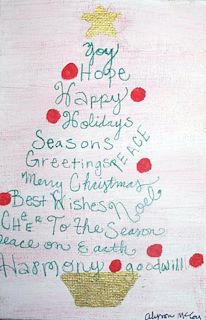 Joy
Hope
Happy
Holidays
Seasons
Greetings PEACE
Merry Christmas
Best Wishes Noel
CHEER To the Season
Peace on Earth
Harmony goodwill
Alyson McCoy